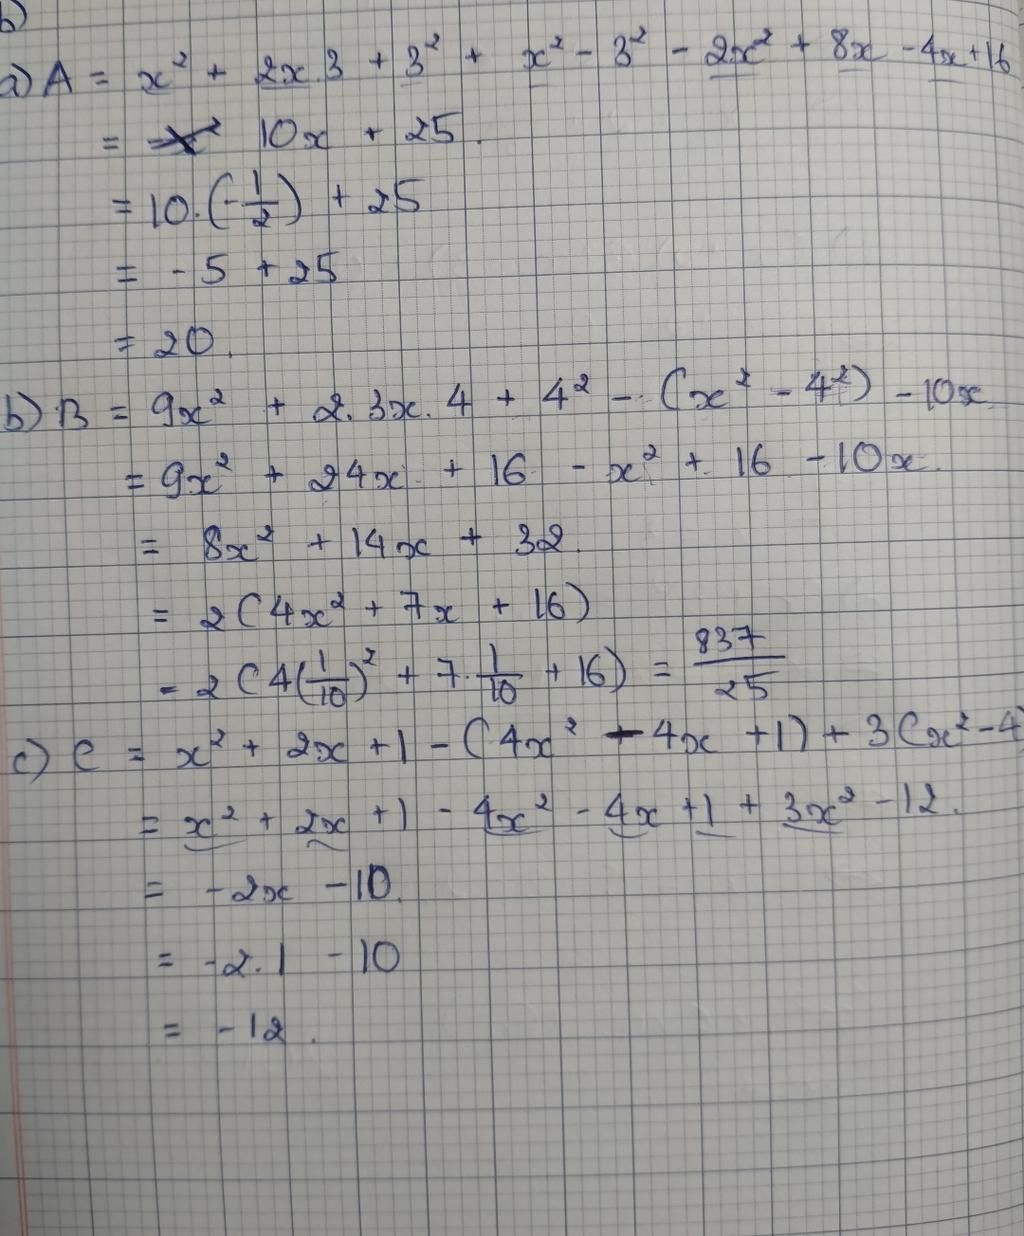 b)
a) A = x² + 2x.3 + 3² + x² - 3² - 2x² + 8x - 4x + 16
= 10x + 25.
= 10.(-1/2) + 25
= -5 + 25
= 20.
b) B = 9x² + 2.3x.4 + 4² - (x² - 4²) - 10x
= 9x² + 24x + 16 - x² + 16 - 10x.
= 8x² + 14x + 32.
= 2(4x² + 7x + 16)
= 2(4(1/10)² + 7.1/10 + 16) = 837/25
c) C = x² + 2x + 1 - (4x² + 4x + 1) + 3(x² - 4)
= x² + 2x + 1 - 4x² - 4x + 1 + 3x² - 12.
= -2x - 10.
= -2.1 - 10
= -12.